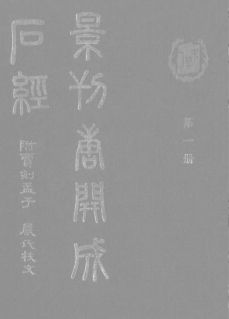 景刊唐開成
石經
附賈刻孟子 嚴氏校文
第一册